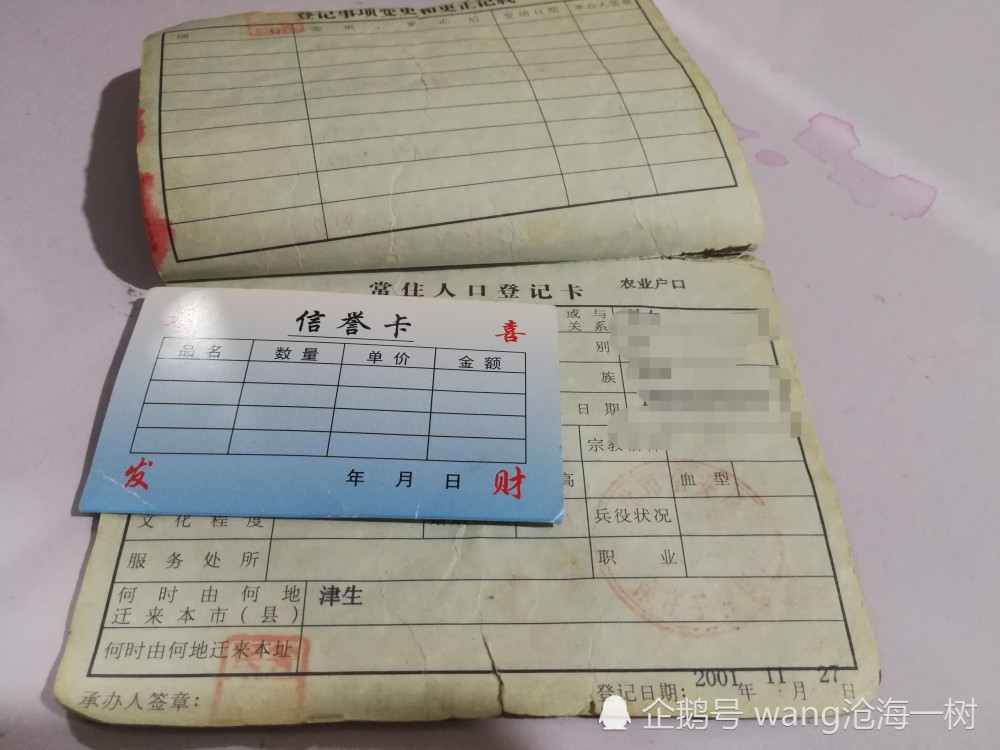 登记事项变更和更正记载
项
变更、更正后
变动日期
承办人签章
常住人口登记卡
农业户口
或与
关系
别
族
日期
信誉卡
喜
品名 数量 单价 金额
发
年 月 日
财
宗教
高
血型
文化程度
兵役状况
服务处所
职业
何时由何地
迁来本市(县)
津生
何时由何地迁来本址
承办人签章:
登记日期: 2001 年 11 月 27 日
企鹅号 wang沧海一树